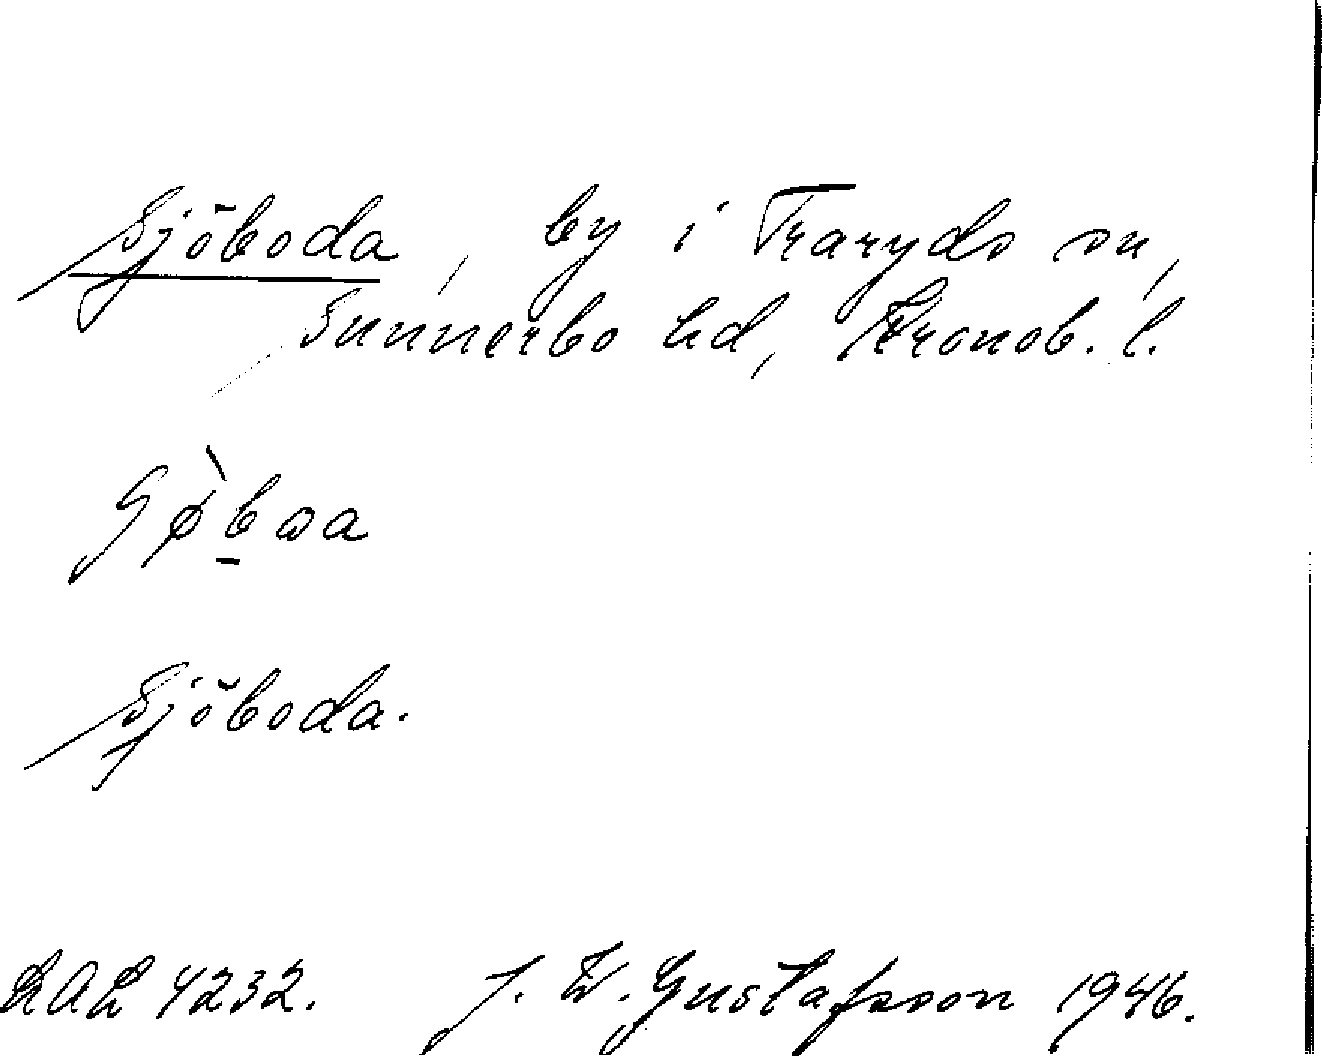 Sjöboda, by i Traryds sn,
Sunnerbo hd, Kronob. l.
Sjöboda.
LAL 4232. J. W. Gustafsson 1946.